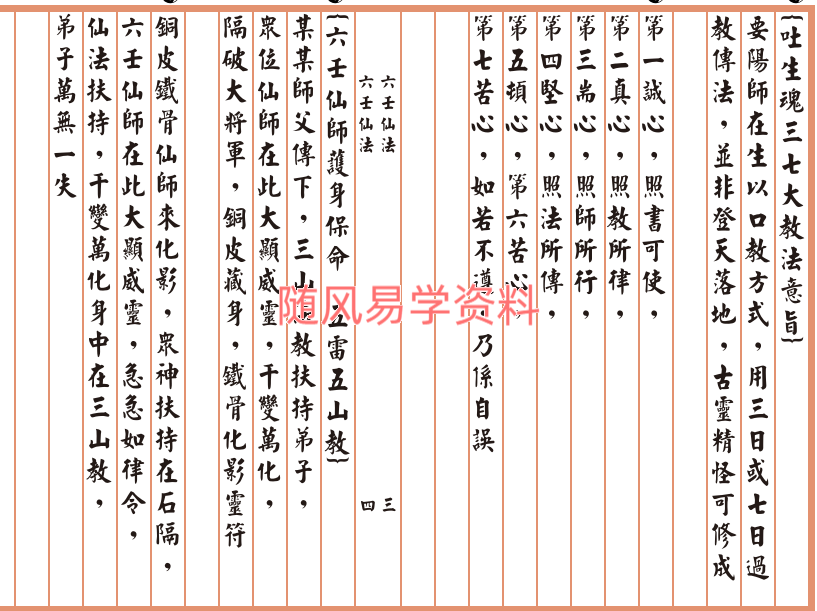 {吐生魂三七大教法意旨}
要陽師在生以口教方式，用三日或七日過
教傳法，並非登天落地，古靈精怪可修成
第一誠心，照書可使，
第二真心，照教所律，
第三耑心，照師所行，
第四堅心，照法所傳，
第五頓心，第六苦心，
第七苦心，如若不遵，乃係自誤
六壬仙法 三
六壬仙法 四
{六壬仙師護身保命 五雷五山教}
某某師父傳下，三山教扶持弟子，
眾位仙師在此大顯威靈，千變萬化，
隔破大將軍，銅皮藏身，鐵骨化影靈符
銅皮鐵骨仙師來化影，眾神扶持在石隔，
六壬仙師在此大顯威靈，急急如律令，
仙法扶持，千變萬化身中在三山教，
弟子萬無一失
随风易学资料